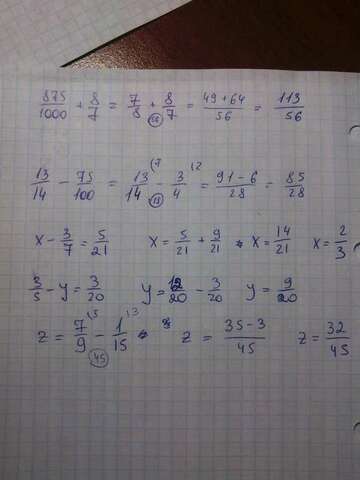 875/1000 + 8/7 = 7/8 + 8/7 (56) = 49+64/56 = 113/56
13/14 - 75/100 = 13/14 - 3/4 = 91-6/28 = 85/28
x - 3/7 = 5/21 x = 5/21 + 9/21 x = 14/21 x = 2/3
3/5 - y = 3/20 y = 12/20 - 3/20 y = 9/20
z = 7/9 (5 - 1/15 (3 (45) z = 35-3/45 z = 32/45